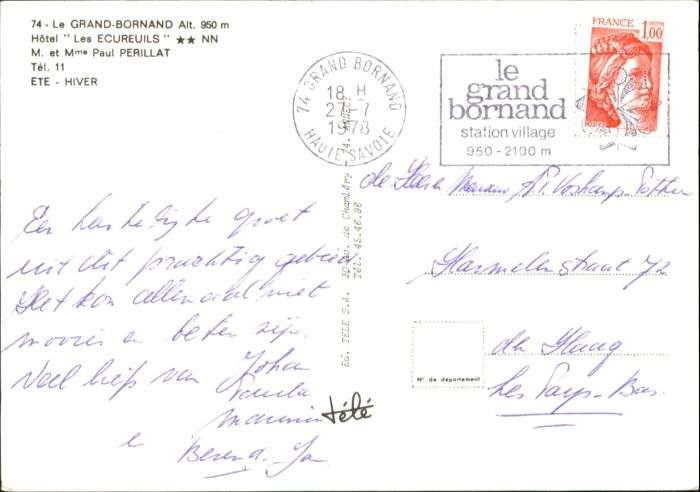 74 - Le GRAND-BORNAND Alt. 950 m
Hôtel "Les ECUREUILS" ★★ NN
M. et Mme Paul PERILLAT
Tél. 11
ETE - HIVER
74 GRAND BORNAND
18 H
27-7
1978
HAUTE-SAVOIE
le
grand
bornand
station village
950 - 2100 m
FRANCE 1,00
POSTES
Een hartelijke groet
uit dit prachtig gebied
Het kon allemaal niet
mooier en beter zijn.
Veel liefs van Johan
Paula
e
Berend-Jan
ED. TELE S.A. de Chambéry - 74. ANNECY
Tél. 45.46.06
télé
de
Karmelenstraat 72
den Haag
N° de département
Les Pays-Bas.